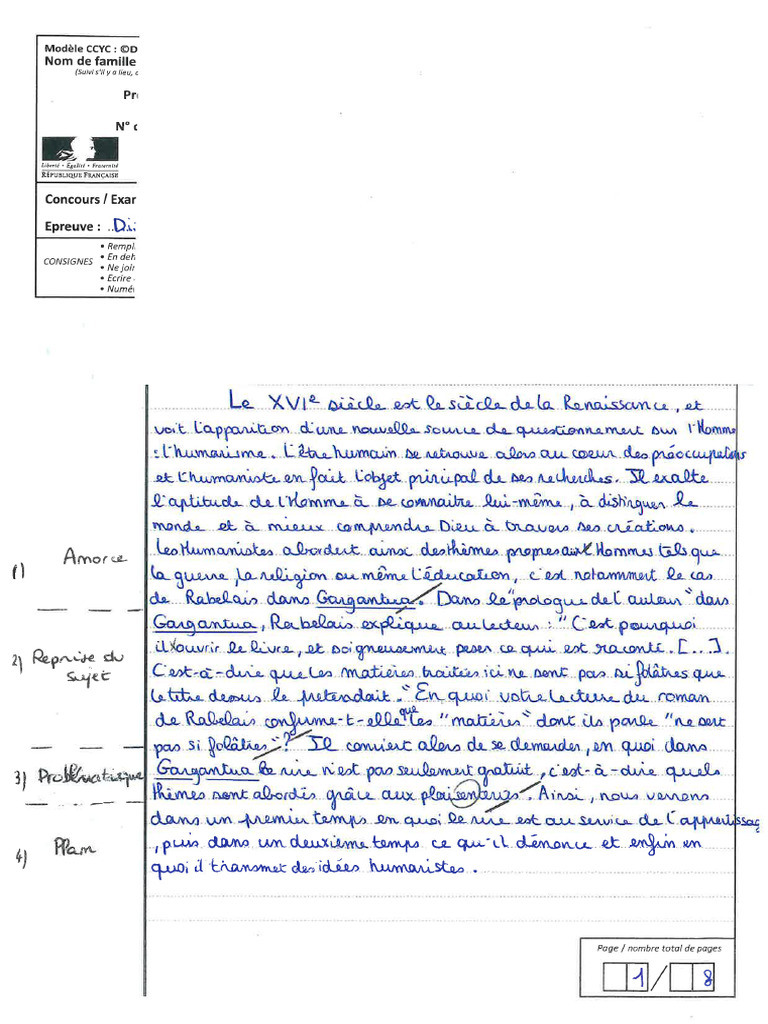 Modèle CCYC : ©D
Nom de famille
(Suivi s'il y a lieu, d
Pr
N° c
Liberté • Égalité • Fraternité
RÉPUBLIQUE FRANÇAISE
Concours / Exar
Epreuve : Di
CONSIGNES
• Rempl
• En deh
• Ne join
• Ecrire
• Numé
Le XVIe siècle est le siècle de la Renaissance, et
voit l'apparition d'une nouvelle source de questionnement sur l'Homme
: l'humanisme. L'être humain se retrouve alors au coeur des préoccupations
et l'humaniste en fait l'objet principal de ses recherches. Il exalte
l'aptitude de l'Homme à se connaitre lui-même, à distinguer le
monde et à mieux comprendre Dieu à travers ses créations.
1) Amorce
Les Humanistes abordent ainsi des thèmes propres aux Hommes tels que
la guerre, la religion ou même l'éducation, c'est notamment le cas
de Rabelais dans Gargantua. Dans le "prologue de l'auteur" dans
Gargantua, Rabelais explique au lecteur : "C'est pourquoi
2) Reprise du sujet
il ouvrir le livre, et soigneusement peser ce qui est raconté. [...].
C'est-à-dire que les matières traitées ici ne sont pas si folâtres que
le titre dessus le prétendait." En quoi votre lecture du roman
de Rabelais confirme-t-elle que les "matières" dont ils parle "ne sont
pas si folâtres"? Il convient alors de se demander, en quoi dans
3) Problématique
Gargantua le rire n'est pas seulement gratuit, c'est-à-dire quels
thèmes sont abordés grâce aux plaisenteries. Ainsi, nous verrons
dans un premier temps en quoi le rire est au service de l'apprentissag
4) Plan
, puis dans un deuxième temps ce qu'il dénonce et enfin en
quoi il transmet des idées humanistes.
Page / nombre total de pages
1 / 8